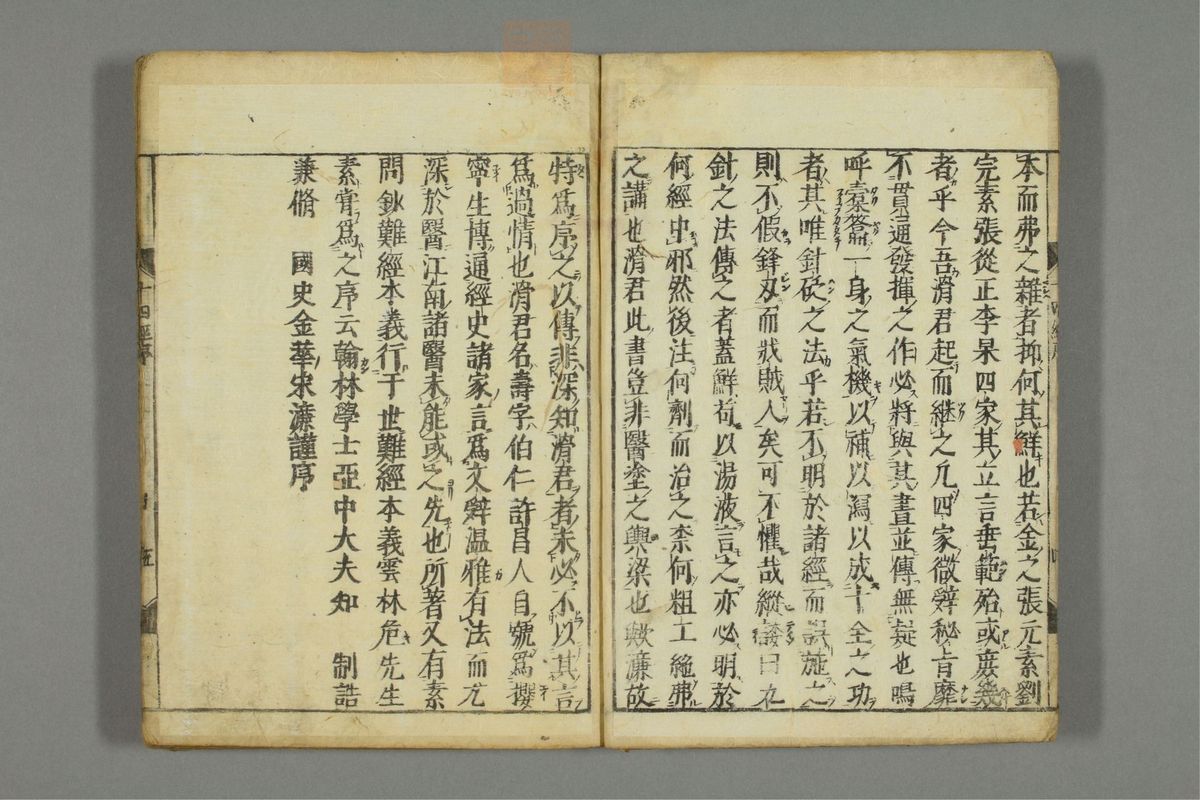 本而弗之雜者抑何其鮮也若金之張元素劉
完素張從正李杲四家其立言垂範殆或庶幾
者乎今吾滑君起而継之凢四家微辤秘旨靡
不貫通發揮之作必將與其書並傳無疑也嗚
呼槖籥一身之氣機以補以瀉以成十全之功
者其唯針砭之法乎若不明於諸經而誤施之
則不假鋒刄而戕賊人矣可不懼哉縱諉曰九
針之法傳之者蓋鮮苟以湯液言之亦必明於
何經中邪然後注何劑而治之柰何粗工絶弗
之講也滑君此書豈非醫塗之輿梁也歟濂故
特爲序之以傳非深知滑君者未必不以其言
爲過情也滑君名壽字伯仁許昌人自號爲攖
寧生博通經史諸家言爲文辤温雅有法而尤
深於醫江南諸醫未能或之先也所著又有素
問鈔難經本義行于世難經本義雲林危先生
素甞爲之序云翰林學士亞中大夫知　制誥
兼脩　國史金華宋濂謹序
十四經序
五